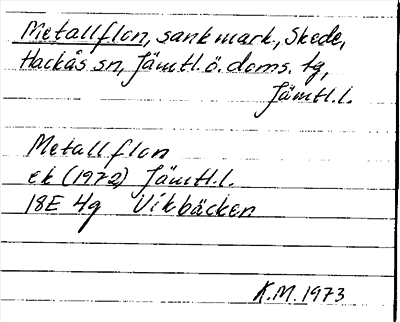 Metallflon, sank mark., Skede,
Hackås sn, Jämtl.ö. doms. tg,
Jämtl.l.
Metallflon
ek (1972) Jämtl.l.
18E 4g Vikbäcken
K.M. 1973